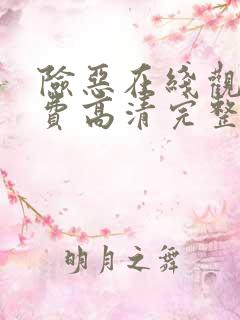 險惡在綫觀
費高清完整
明月之舞